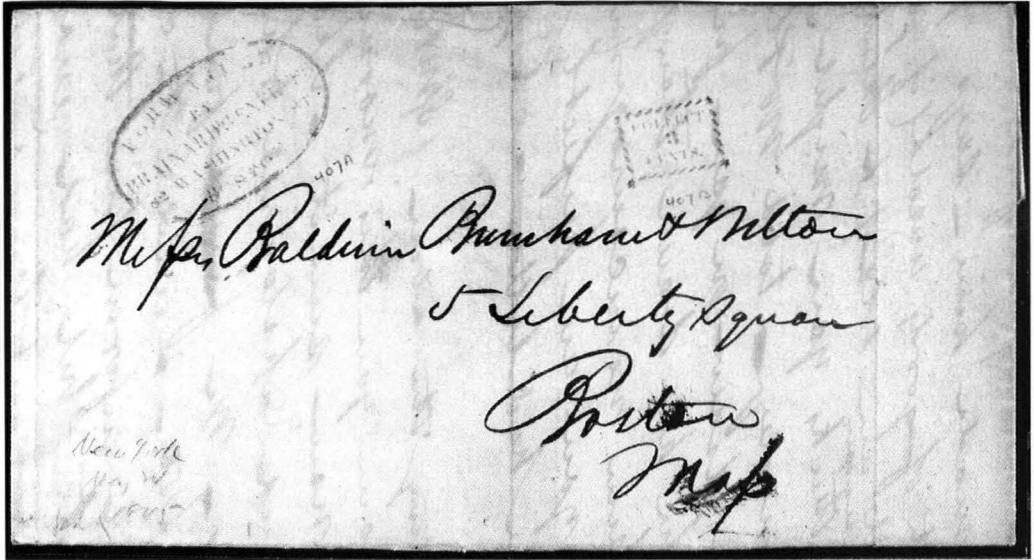 FORWARDED
BY
BRAINARD & CO
82 WASHINGTON ST
COLLECT
3
CENTS
407A
407B
Messrs Baldwin Burnham & Melton
5 Liberty Square
Boston
Mass
New York